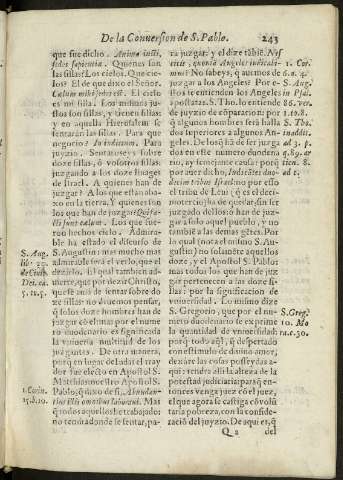 De la Conuersion de S. Pablo. 243
que fue dicho. Anima iusti,
sedes sapientiæ. Quienes son
las sillas? Los cielos. Que cie-
los? El de que dixo el Señor.
Cœlum mihi sedes est. El cielo
es mi silla. Los mismos ju-
stos son sillas, y tienen sillas:
y en aquella Hierusalem se
sentaràn las sillas. Para que
negocio? In iudicium. Para
juyzio. Sentaros eys sobre
doze sillas, ò vosotros sillas
juzgando a los doze linages
de Israel. A quienes han de
juzgar? A los que estan aba-
xo en la tierra. Y quienes son
los que han de juzgar? Qui fa-
cti sunt cœlum. Los que fue-
ron hechos cielo. Admira-
ble ha estado el discurso de
S. Augustin: mas mucho mas
admirable serà el verlo, que el
dezirlo. El qual tambien ad-
uierte, que por dezir Christo,
que se auiã de sentar sobre do
ze sillas: no deuemos pensar,
q̃ solos doze hombres han de
juzgar cõ el: mas por el nume
ro duodecimo es significada
la vniuersa multitud de los
juzgantes. De otra manera,
porq̃ en lugar de Iudas el tray
dor fue electo en Apostol S.
Matthias: nuestro Apostol S.
Pablo, q̃ dixo de si, Abundan-
tius illis omnibus laboraui. Mas
q̃ todos aquellos he trabajado:
no tendra donde se sentar, pa-
S. Aug.
lib. 20.
de Ciuit.
Dei. ca.
5. to. 5.
1. Corin.
15. b. 10.
ra juzgar: y el dize tãbiẽ. Nes
citis, quoniã Angelos iudicabi-
mus? No sabeys, q̃ auemos de
juzgar a los Angeles? Por e-
stos se entienden los Angeles
apostatas. S. Tho. lo entiende
de juyzio de cõparacion: por
q̃ algunos hombres serã halla
dos superiores a algunos An-
geles. De los q̃ hã de ser juzga
dos en este numero duodena
rio, ay semejante causa: porq̃
por auer dicho, Iudicãtes duo-
decim tribus Israel: no por esso
el tribu de Leui (q̃ es el deci-
motercio) ha de quedar, sin ser
juzgado dellos: ò han de juz-
gar a solo aquel pueblo, y no
tambiẽ a las demas gẽtes. Por
lo qual (nota el mismo S. Au-
gustin) no solamẽte aquellos
doze, y el Apostol S. Pablo:
mas todos los que han de juz-
gar pertenecen a las doze si-
llas: por la significacion de
vniuersidad. Lo mismo dize
S. Gregorio, que por el nu-
mero duodecimo es exprime
la quantidad de vniuersidad:
porq̃ todo aq̃l, q̃ despertado
con estimulo de diuino amor,
dexâre las cosas posseydas a-
qui: tendra alla la altura de la
potestad judiciaria: para q̃ en-
tonces venga juez cõ el juez,
el que aora se castiga cõ volũ
taria pobreza, con la conside-
raciõ del juyzio. De aqui es, q̃
1. Cor.
6. a. 4.
S. Aug.
in Psal.
86. ver.
1. to. 8.
S. Tho.
in addit.
q. 89. ar
tic. 8.
ad 1.
S. Greg.
10. Mo
ra. c. 30.
Q 2 del